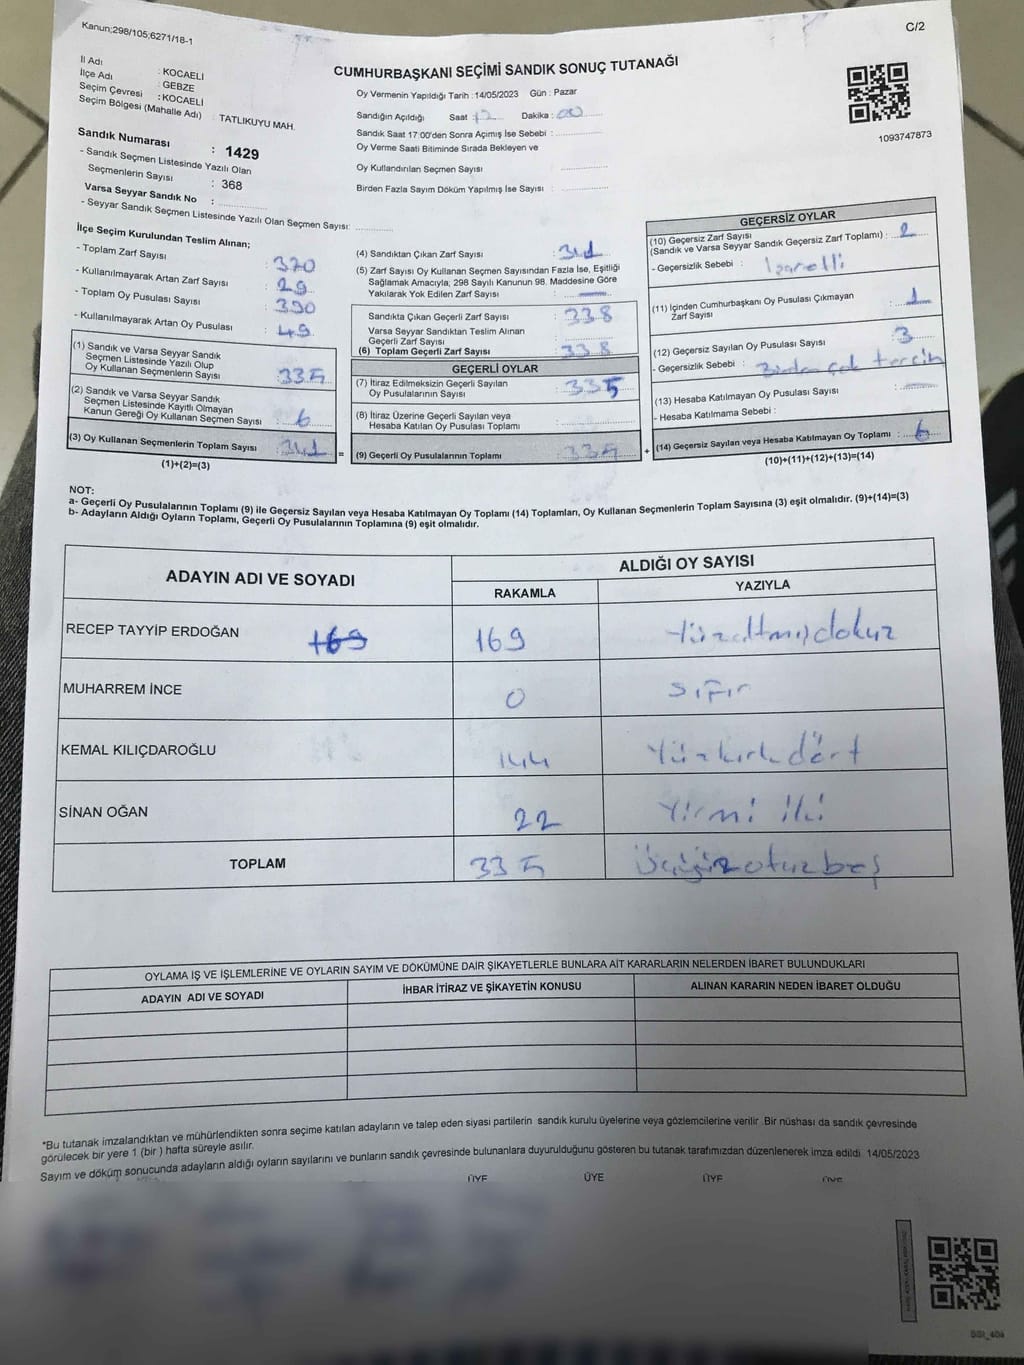 Kanun;298/105;6271/18-1
C/2
İl Adı : KOCAELİ
İlçe Adı : GEBZE
Seçim Çevresi : KOCAELİ
Seçim Bölgesi (Mahalle Adı) : TATLIKUYU MAH.
Sandık Numarası : 1429
- Sandık Seçmen Listesinde Yazılı Olan
Seçmenlerin Sayısı : 368
Varsa Seyyar Sandık No :
- Seyyar Sandık Seçmen Listesinde Yazılı Olan Seçmen Sayısı:
CUMHURBAŞKANI SEÇİMİ SANDIK SONUÇ TUTANAĞI
Oy Vermenin Yapıldığı Tarih : 14/05/2023 Gün : Pazar
Sandığın Açıldığı Saat : 17 Dakika : 00
Sandık Saat 17:00'den Sonra Açımış İse Sebebi :
Oy Verme Saati Bitiminde Sırada Bekleyen ve
Oy Kullandırılan Seçmen Sayısı
Birden Fazla Sayım Döküm Yapılmış İse Sayısı :
1093747873
İlçe Seçim Kurulundan Teslim Alınan;
- Toplam Zarf Sayısı : 370
- Kullanılmayarak Artan Zarf Sayısı : 29
- Toplam Oy Pusulası Sayısı : 390
- Kullanılmayarak Artan Oy Pusulası : 49
(1) Sandık ve Varsa Seyyar Sandık
Seçmen Listesinde Yazılı Olup
Oy Kullanan Seçmenlerin Sayısı : 335
(2) Sandık ve Varsa Seyyar Sandık
Seçmen Listesinde Kayıtlı Olmayan
Kanun Gereği Oy Kullanan Seçmen Sayısı : 6
(3) Oy Kullanan Seçmenlerin Toplam Sayısı : 341
(1)+(2)=(3)
(4) Sandıktan Çıkan Zarf Sayısı : 341
(5) Zarf Sayısı Oy Kullanan Seçmen Sayısından Fazla İse, Eşitliği
Sağlamak Amacıyla; 298 Sayılı Kanunun 98. Maddesine Göre
Yakılarak Yok Edilen Zarf Sayısı :
Sandıkta Çıkan Geçerli Zarf Sayısı : 338
Varsa Seyyar Sandıktan Teslim Alınan
Geçerli Zarf Sayısı :
(6) Toplam Geçerli Zarf Sayısı : 338
GEÇERLİ OYLAR
(7) İtiraz Edilmeksizin Geçerli Sayılan
Oy Pusulalarının Sayısı : 335
(8) İtiraz Üzerine Geçerli Sayılan veya
Hesaba Katılan Oy Pusulası Toplamı :
= (9) Geçerli Oy Pusulalarının Toplamı : 335 +
GEÇERSİZ OYLAR
(10) Geçersiz Zarf Sayısı
(Sandık ve Varsa Seyyar Sandık Geçersiz Zarf Toplamı) : 2
- Geçersizlik Sebebi : İşaretli
(11) İçinden Cumhurbaşkanı Oy Pusulası Çıkmayan
Zarf Sayısı : 1
(12) Geçersiz Sayılan Oy Pusulası Sayısı : 3
- Geçersizlik Sebebi : Birden çok tercih
(13) Hesaba Katılmayan Oy Pusulası Sayısı :
- Hesaba Katılmama Sebebi :
(14) Geçersiz Sayılan veya Hesaba Katılmayan Oy Toplamı : 6
(10)+(11)+(12)+(13)=(14)
NOT:
a- Geçerli Oy Pusulalarının Toplamı (9) ile Geçersiz Sayılan veya Hesaba Katılmayan Oy Toplamı (14) Toplamları, Oy Kullanan Seçmenlerin Toplam Sayısına (3) eşit olmalıdır. (9)+(14)=(3)
b- Adayların Aldığı Oyların Toplamı, Geçerli Oy Pusulalarının Toplamına (9) eşit olmalıdır.
ADAYIN ADI VE SOYADI
ALDIĞI OY SAYISI
RAKAMLA YAZIYLA
RECEP TAYYİP ERDOĞAN 169 169 Yüzaltmışdokuz
MUHARREM İNCE 0 sıfır
KEMAL KILIÇDAROĞLU 144 Yüzkırkdört
SİNAN OĞAN 22 Yirmi iki
TOPLAM 335 Üçyüzotuzbeş
OYLAMA İŞ VE İŞLEMLERİNE VE OYLARIN SAYIM VE DÖKÜMÜNE DAİR ŞİKAYETLERLE BUNLARA AİT KARARLARIN NELERDEN İBARET BULUNDUKLARI
ADAYIN ADI VE SOYADI İHBAR İTİRAZ VE ŞİKAYETİN KONUSU ALINAN KARARIN NEDEN İBARET OLDUĞU
*Bu tutanak imzalandıktan ve mühürlendikten sonra seçime katılan adayların ve talep eden siyasi partilerin sandık kurulu üyelerine veya gözlemcilerine verilir. Bir nüshası da sandık çevresinde
görülecek bir yere 1 (bir ) hafta süreyle asılır.
Sayım ve döküm sonucunda adayların aldığı oyların sayılarını ve bunların sandık çevresinde bulunanlara duyurulduğunu gösteren bu tutanak tarafımızdan düzenlenerek imza edildi. 14/05/2023
ÜYE ÜYE ÜYE ÜYE